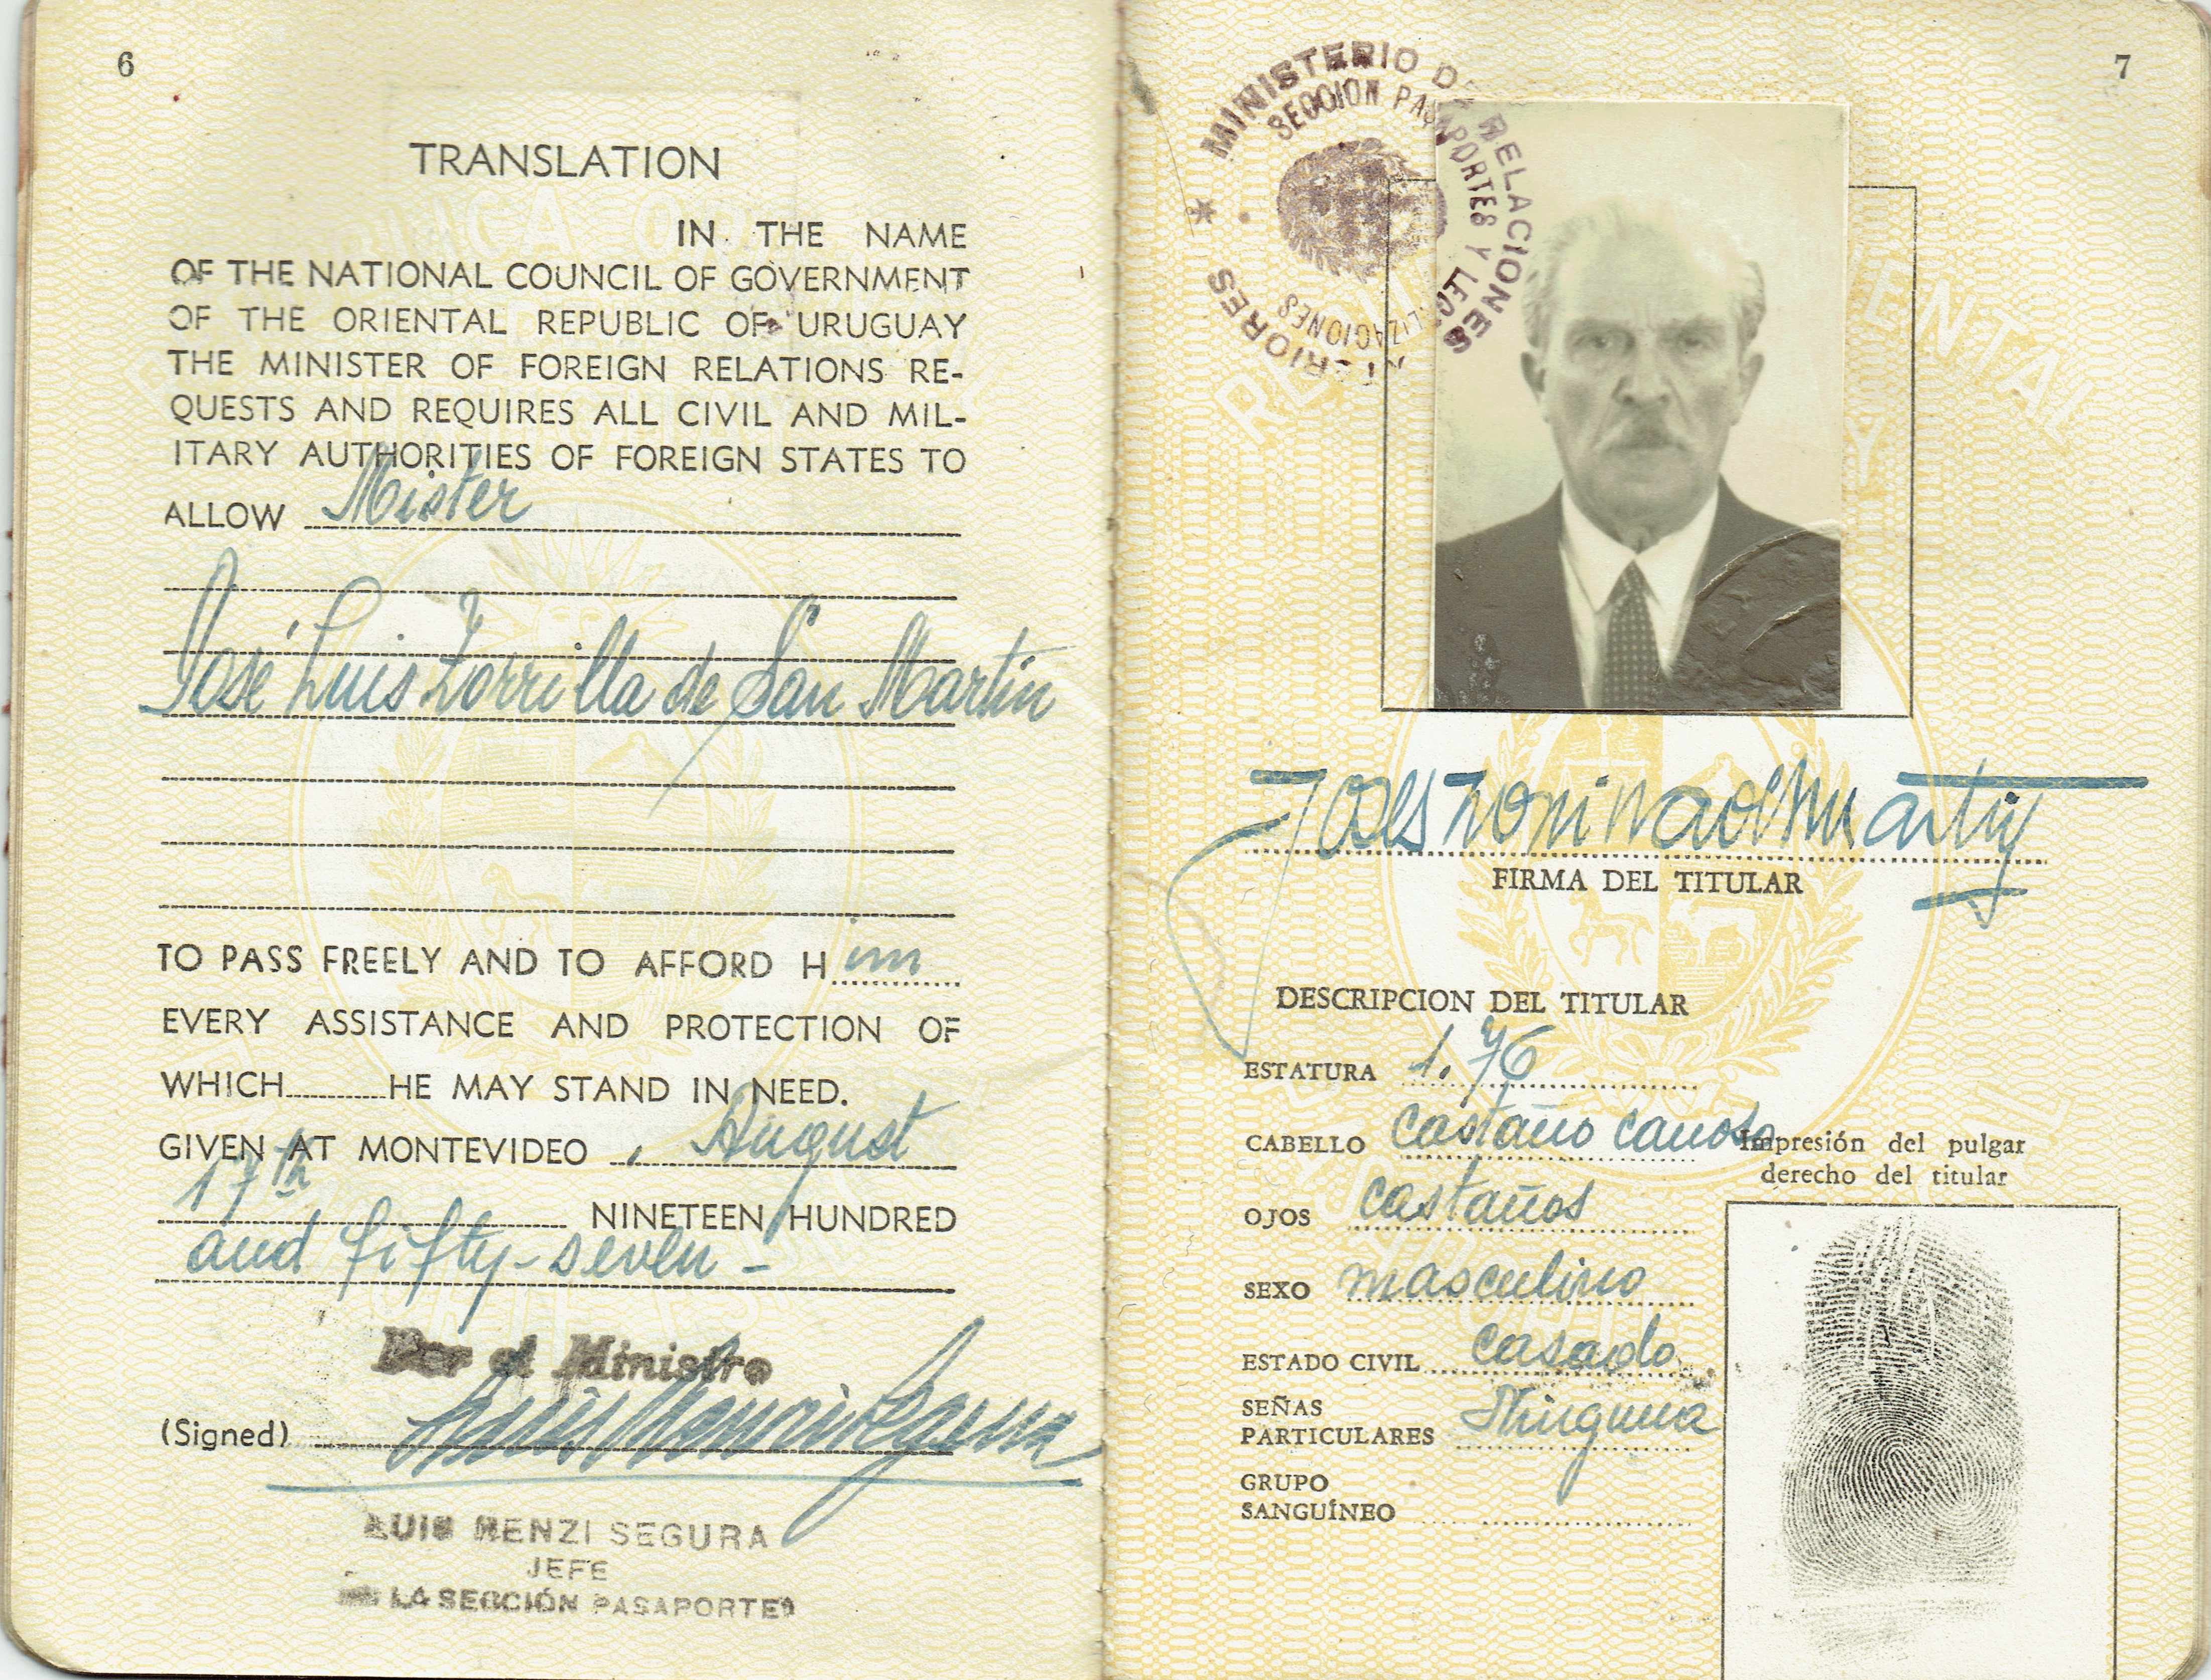 6
TRANSLATION
IN THE NAME
OF THE NATIONAL COUNCIL OF GOVERNMENT
OF THE ORIENTAL REPUBLIC OF URUGUAY
THE MINISTER OF FOREIGN RELATIONS RE-
QUESTS AND REQUIRES ALL CIVIL AND MIL-
ITARY AUTHORITIES OF FOREIGN STATES TO
ALLOW Mister
José Luis Zorrilla de San Martín
TO PASS FREELY AND TO AFFORD Him
EVERY ASSISTANCE AND PROTECTION OF
WHICH HE MAY STAND IN NEED.
GIVEN AT MONTEVIDEO, August
17th NINETEEN HUNDRED
and fifty-seven-
Por el Ministro
(Signed)
LUIS RENZI SEGURA
JEFE
LA SECCIÓN PASAPORTES
7
MINISTERIO DE RELACIONES EXTERIORES
SECCION PASAPORTES Y LEGALIZACIONES
FIRMA DEL TITULAR
DESCRIPCION DEL TITULAR
ESTATURA 1.76
CABELLO castaño canoso
OJOS castaños
SEXO masculino
ESTADO CIVIL casado
SEÑAS
PARTICULARES Ninguna
GRUPO
SANGUÍNEO
Impresión del pulgar
derecho del titular